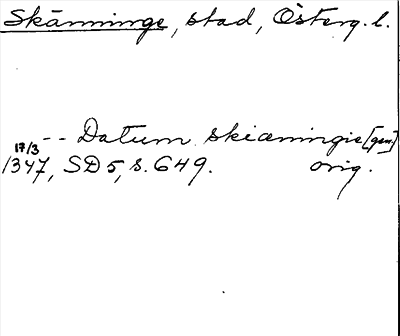 Skänninge, stad, Österg. l.
-- Datum skiæningie [gen]
17/3
1347, SD 5, s. 649. orig.